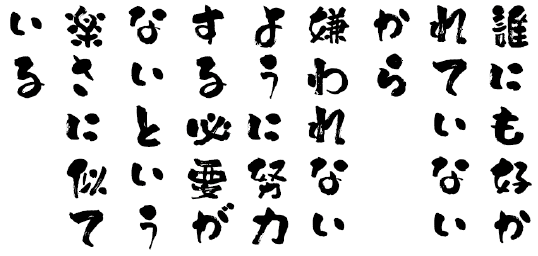 誰にも好か
れていない
から
嫌われない
ように努力
する必要が
ないという
楽さに似て
いる